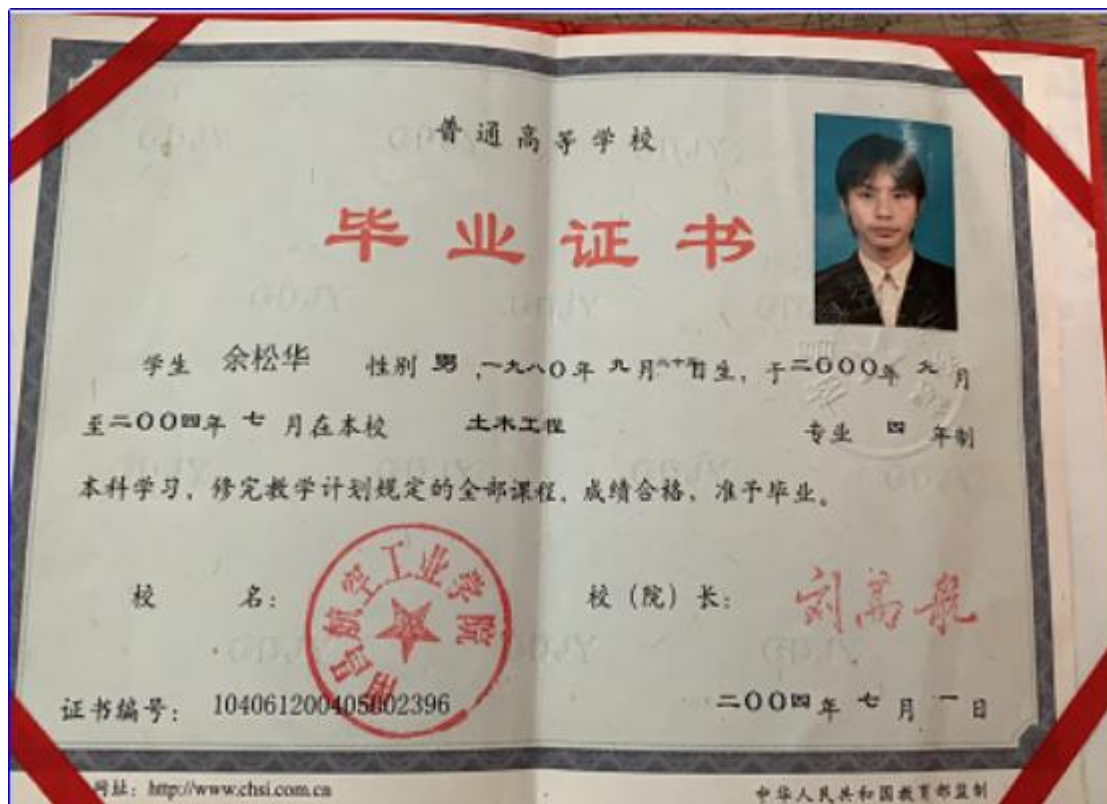 普通高等学校
毕业证书
学生 余松华 性别 男，一九八〇年 九月二十日生，于二〇〇〇年 九月
至二〇〇四年 七 月在本校 土木工程 专业 四 年制
本科学习，修完教学计划规定的全部课程，成绩合格，准予毕业。
校 名： 南昌航空工业学院 校（院）长： 刘高航
证书编号： 104061200405002396 二〇〇四年 七 月 一 日
网址：http://www.chsi.com.cn 中华人民共和国教育部监制